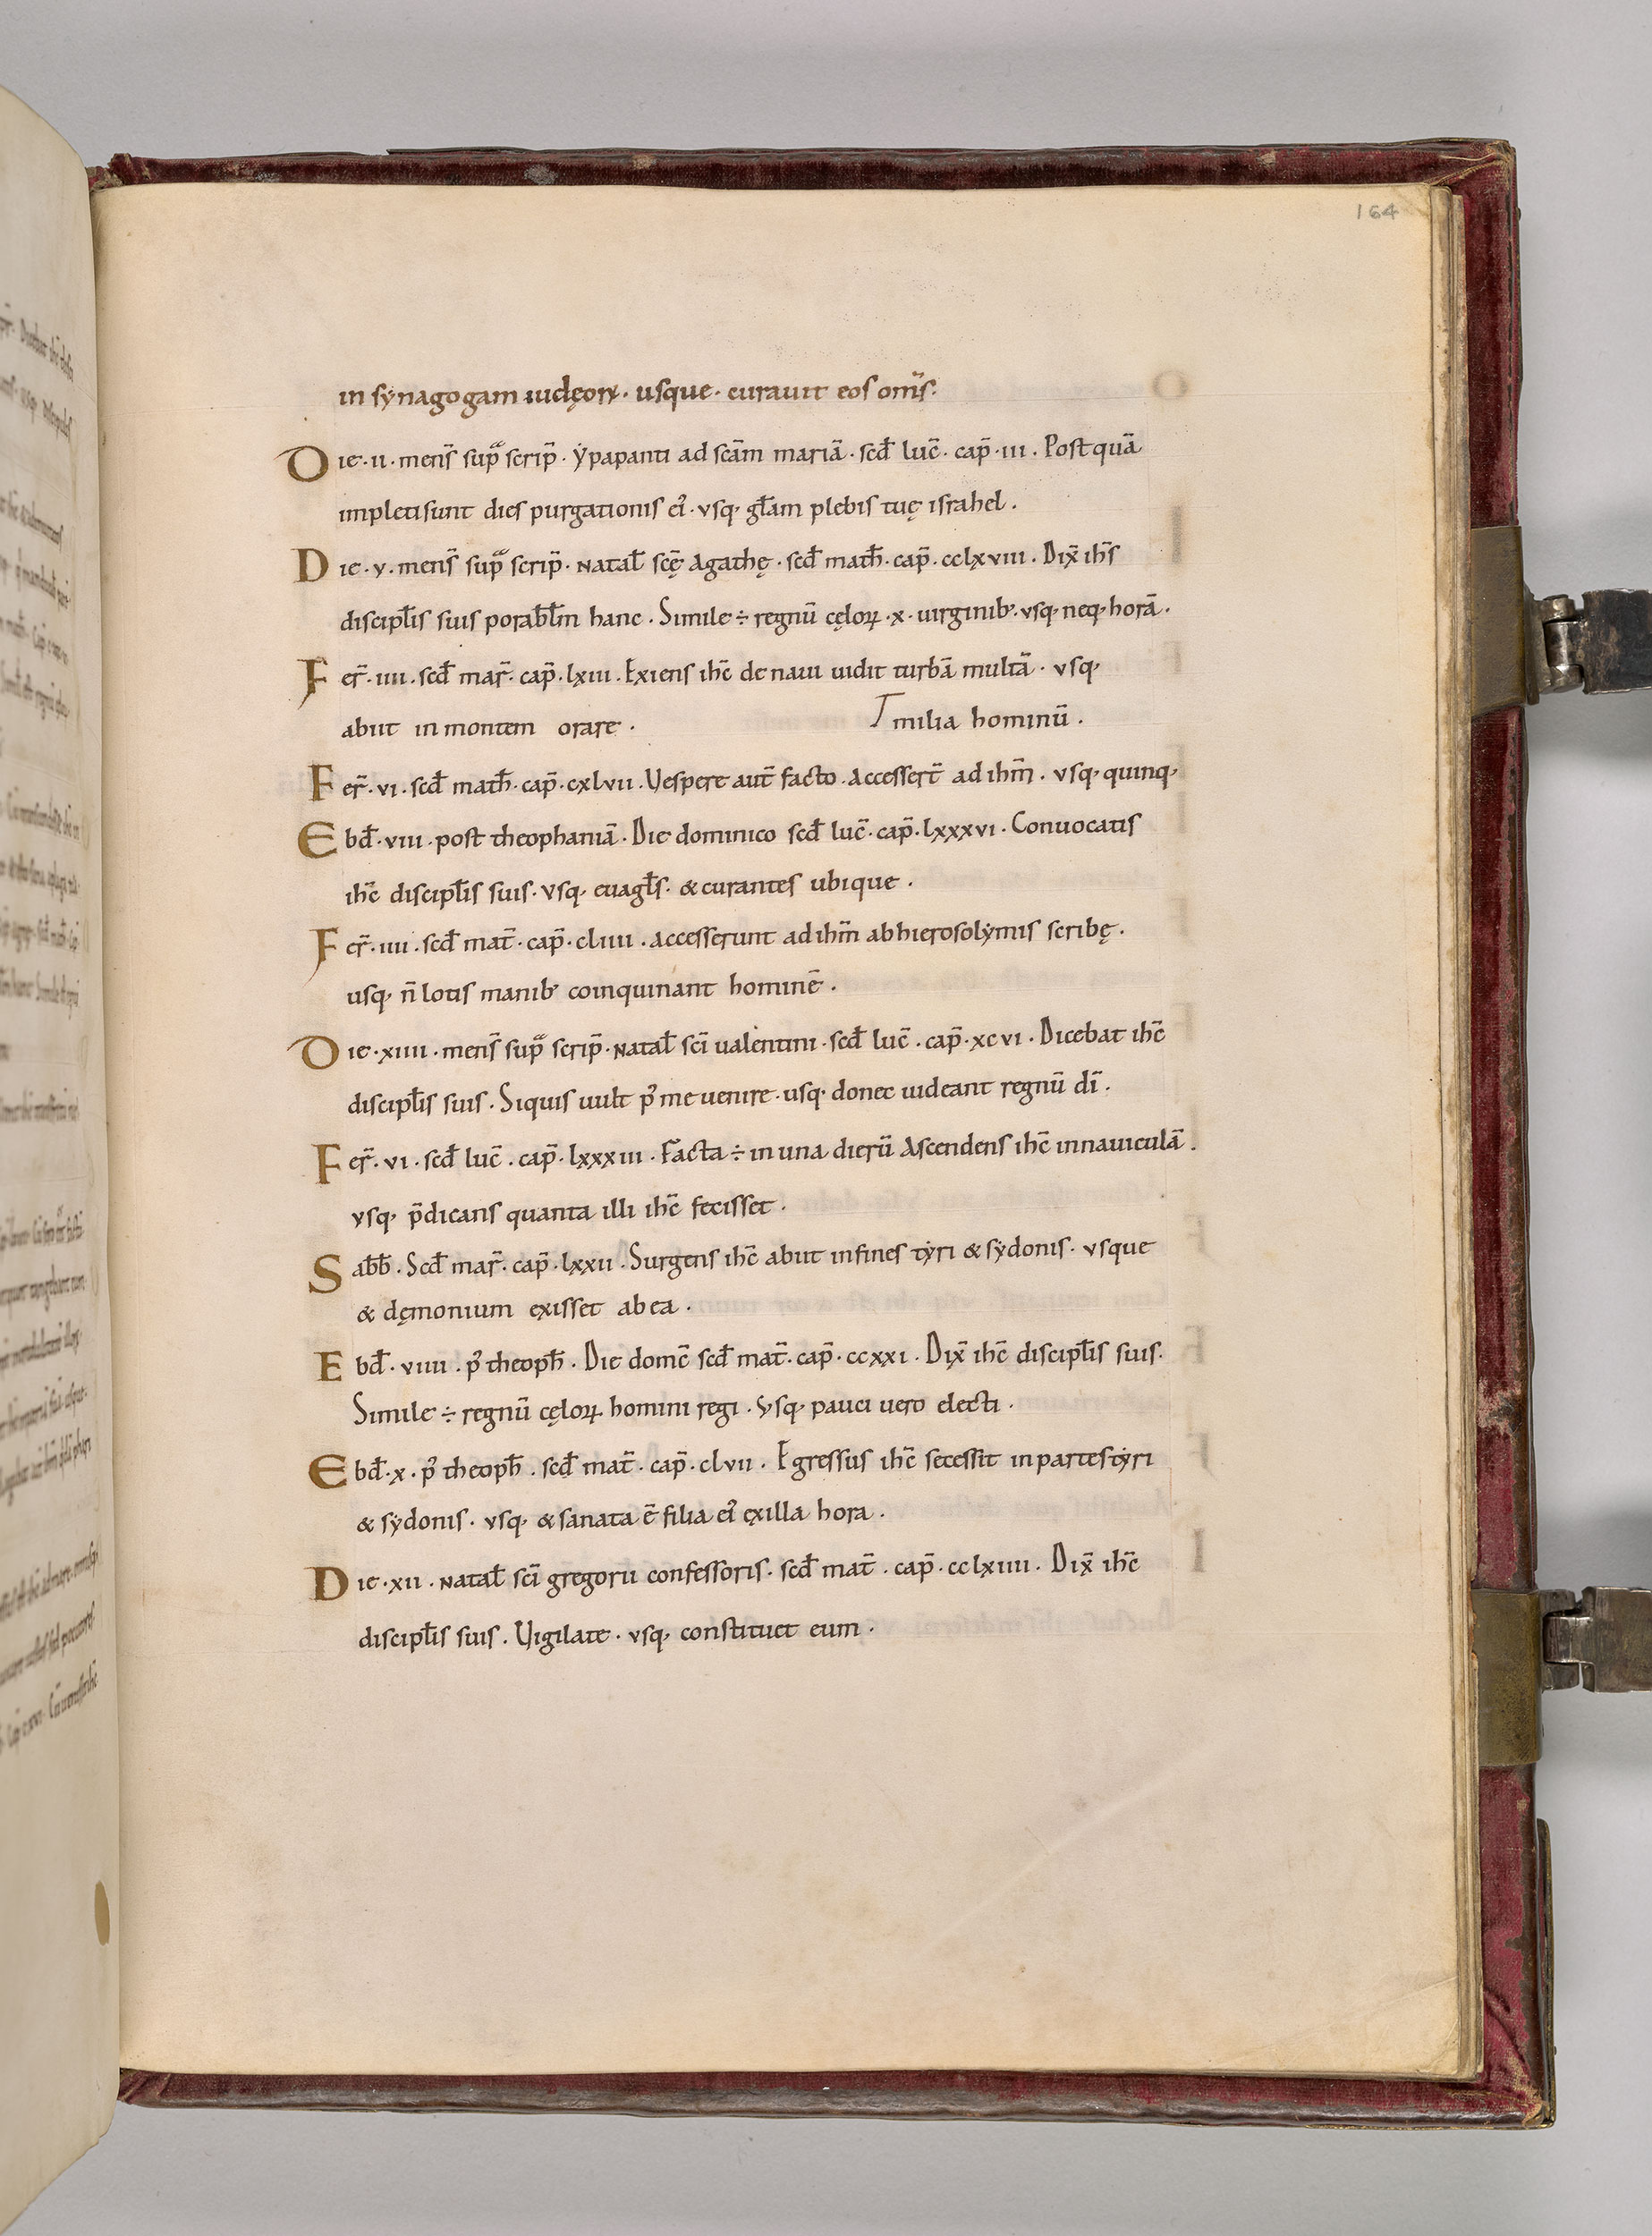 164
in synagogam iudęoꝝ · usque · curauit eos om̅s ·
Die · ii · mens̅ sup̅ᵃ scrip̅ · ẏpapanti ad sc̅am mariā · scd̅ luc̅ · cap̅ · iii · Postquā
impleti sunt dies purgationis ei᾽ · vsq, gl̅am plebis tuę israhel .
Die · v · mens̅ sup̅ᵃ scrip̅ · natal̅ sc̅ę Agathę · scd̅ math̅ · cap̅ · cclxviii · Dix̅ ih̅s
discipl̅is suis porabl̅m hanc . Simile ÷ regnū cęloꝝ · x · uirginib᾽ · vsq, neq, horā .
Fer̅ · iiii · scd̅ mar̅ · cap̅ · lxiii . Exiens ih̅c de naui uidit turbā multā · vsq,
abiit in montem orare . milia hominū .
Fer̅ · vi · scd̅ math̅ · cap̅ · cxlvii . Vespere aut̅ facto . accesser̅t ad ih̅m . vsq, quinq,
Ebd̅ · viii · post theophaniā · Die dominico scd̅ luc̅ · cap̅ · lxxxvi · Conuocatis
ih̅c discipl̅is suis · vsq, euagl̅s · & curantes ubique .
Fer̅ · iiii · scd̅ mat̅ · cap̅ · cliiii . accesserunt ad ih̅m ab hierosolẏmis scribę .
usq, n̅ lotis manib᾽ coinquinant hominē .
Die · xiiii · mens̅ sup̅ᵃ scrip̅ · natal̅ sc̅i ualentini · scd̅ luc̅ . cap̅ · xcvi · Dicebat ih̅c
discipl̅is suis . Siquis uult p᾽ me uenire · usq, donec uideant regnū di̅ .
Fer̅ · vi · scd̅ luc̅ . cap̅ · lxxxiii · Facta ÷ in una dierū Ascendens ih̅c in nauiculā .
vsq, p̅dicans quanta illi ih̅c fecisset .
Sabb̅ . Scd̅ mar̅ · cap̅ · lxxii . Surgens ih̅c abiit in fines tẏri & sẏdonis · vsque
& dęmonium exisset ab ea .
Ebd̅ · viiii · p᾽ theoph̅ . Die domc̅ scd̅ mat̅ · cap̅ · ccxxi . Dix̅ ih̅c discipl̅is suis .
Simile ÷ regnū cęloꝝ homini regi . Vsq, pauci uero electi .
Ebd̅ · x · p᾽ theoph̅ . scd̅ mat̅ · cap̅ · clvii . Egressus ih̅c secessit in partes tẏri
& sẏdonis . vsq, & sanata ē filia ei᾽ ex illa hora .
Die · xii . natal̅ sc̅i gregorii confessoris · scd̅ mat̅ . cap̅ · cclxiiii · Dix̅ ih̅c
discipl̅is suis . Vigilate · vsq, constituet eum .